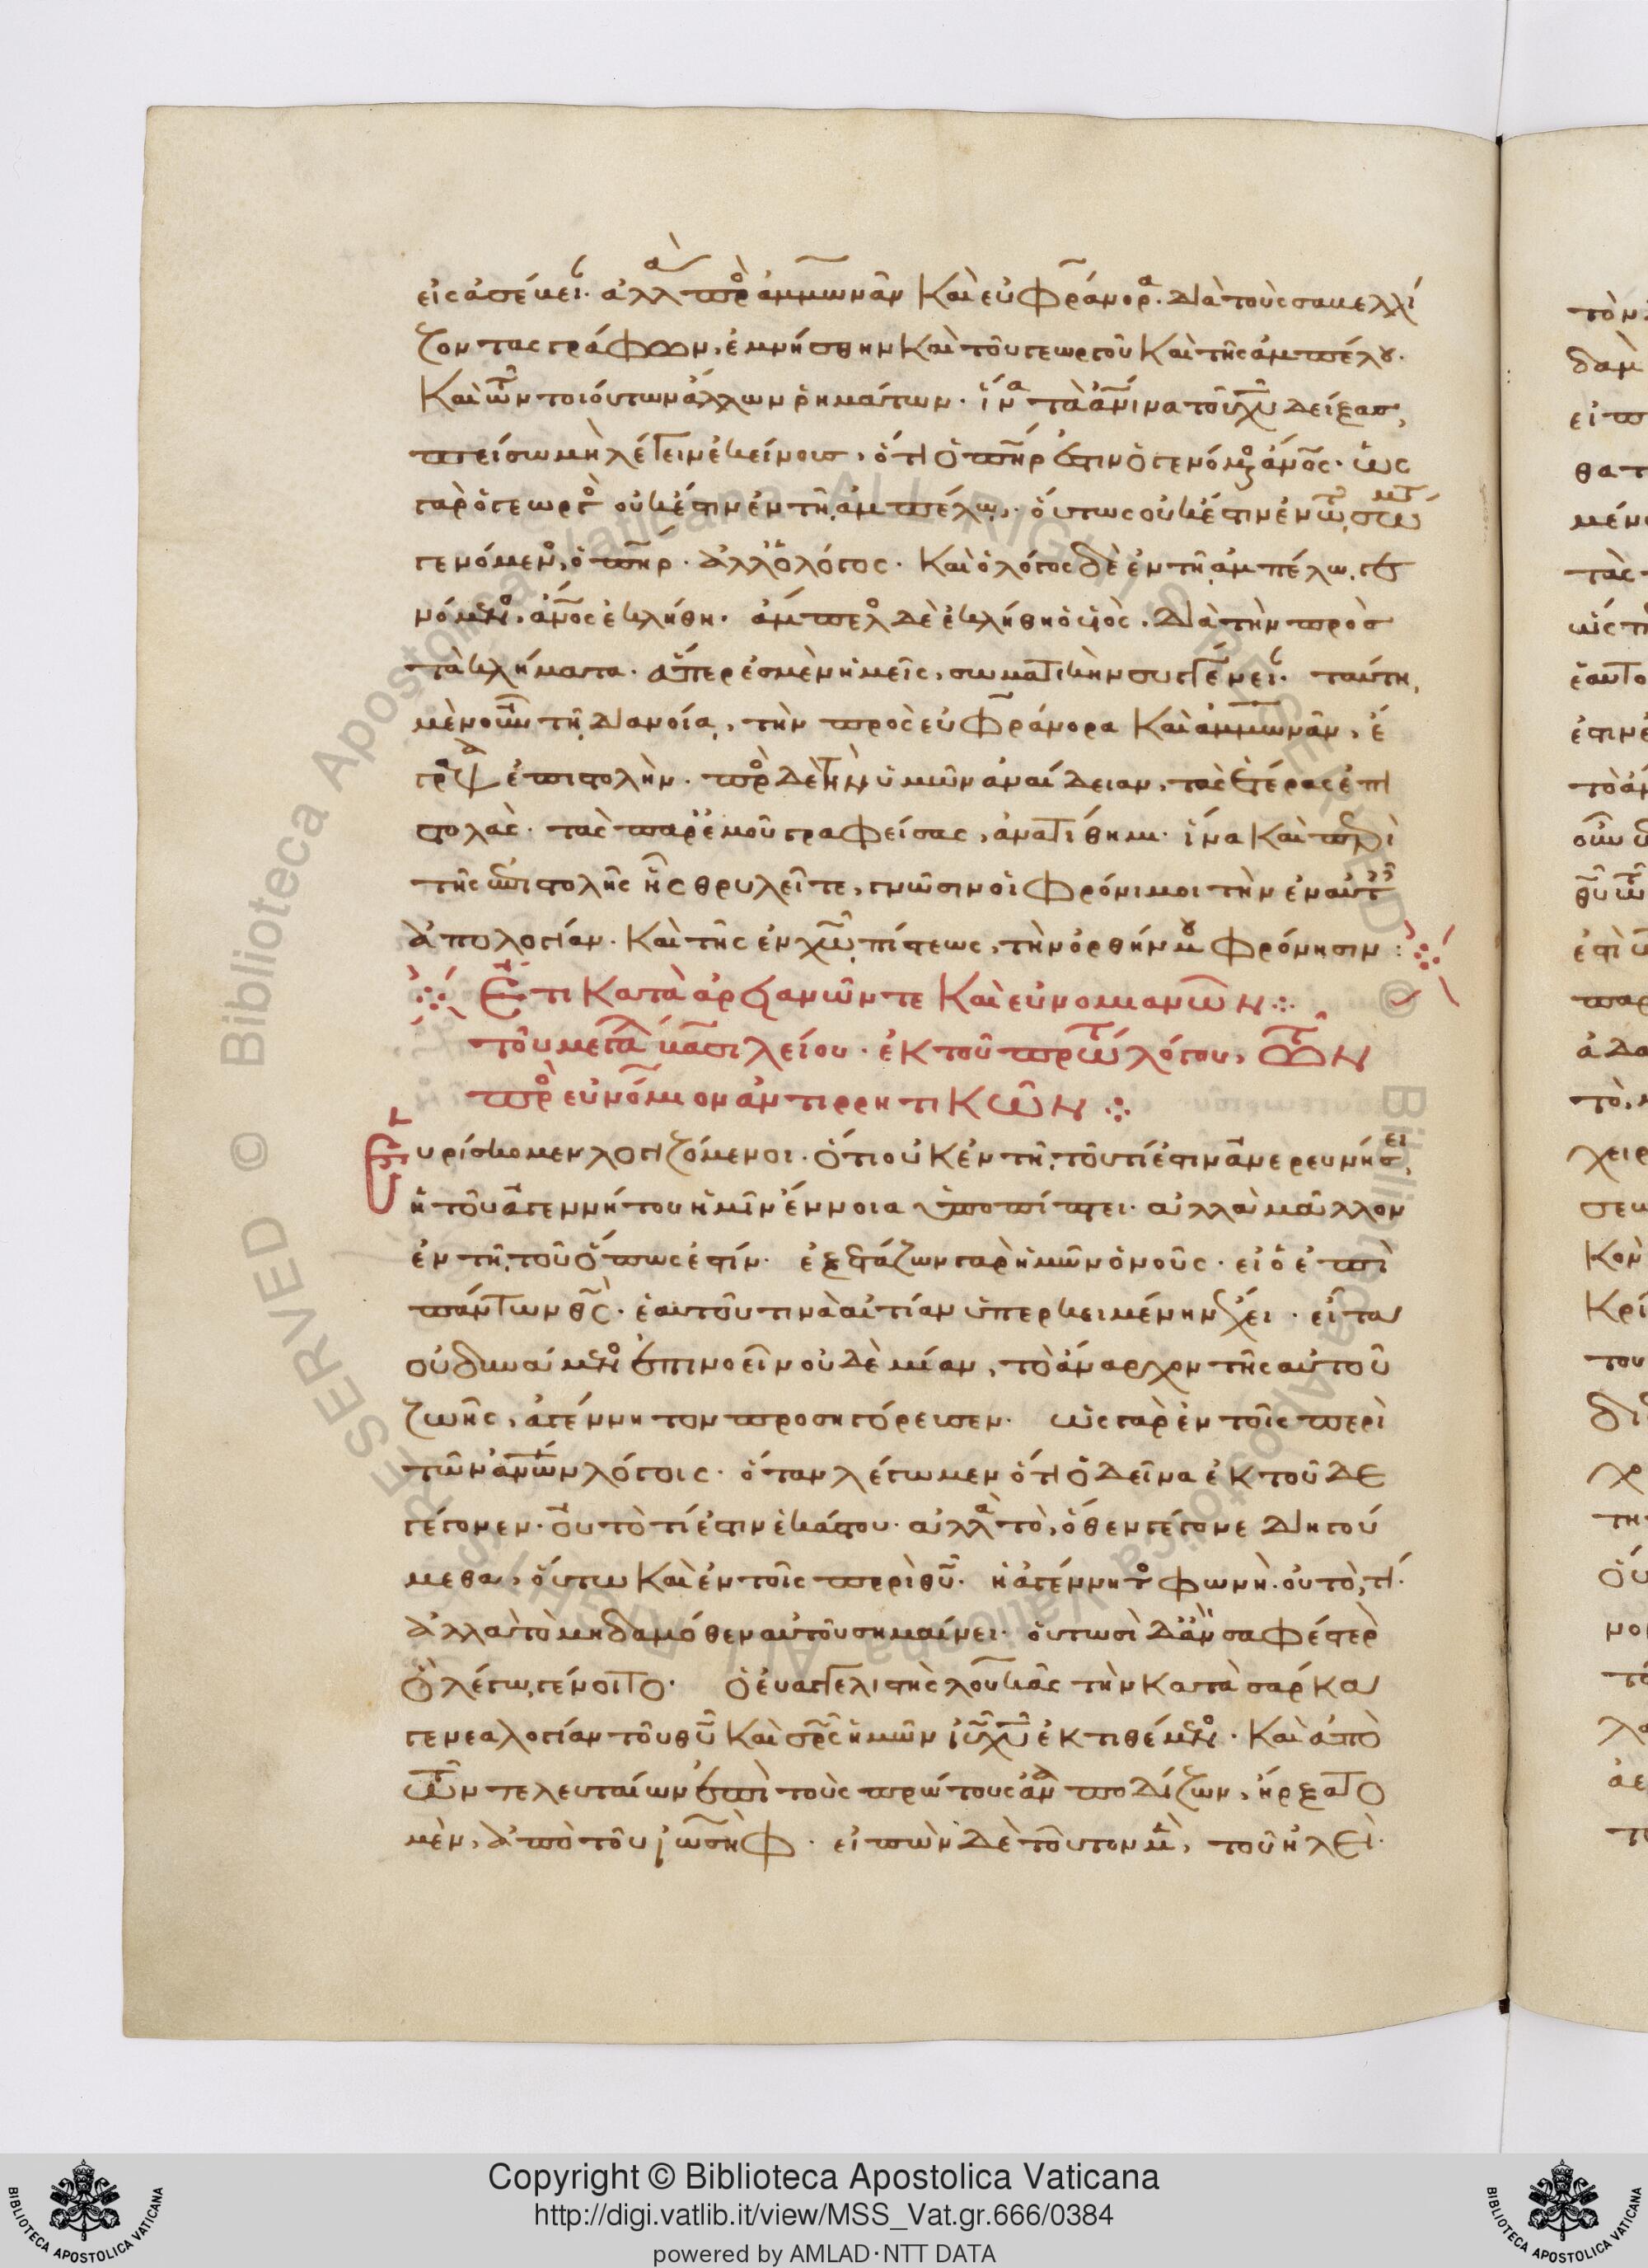 εἰς ἀσέβει· ἀλλὰ πρὸς ἀμμωνᾶν καὶ εὐφράνορα. διὰ τοὺς σαβελλί
ζοντας γράφων, ἐμνήσθην καὶ τοῦ γεωργοῦ καὶ τῆς ἀμπέλου.
καὶ τῶν τοιούτων ἄλλων ῥημάτων· ἵνα τὰ ἀνινα τοῦ χυ δείξας,
πείσω μὴ λέγειν ἐκείνοις, ὅτι ὁ πηρ ἐστιν ὁ γενόμενος ἄνος· ὡς
γὰρ ὁ γεωργὸς οὐκ ἔστιν ἐν τῆ ἀμπέλω, οὕτως οὐκ ἔστιν ἐν τῶ σώματι
γενόμενος, ὁ πηρ· ἀλλ' ὁ λόγος· καὶ ὁ λόγος δὲ ἐν τῆ ἀμπέλω, γε
νόμενος, ἄνος ἐκλήθη· ἄμπελος δὲ ἐκλήθη ὁ κς, διὰ τὴν πρὸς
τὰ κλήματα· ἅπερ ἐσμὲν ἡμεῖς, σωματικὴν συγγένει· ταύτη
μὲν οὖν τῆ διανοία, τὴν πρὸς εὐφράνορα καὶ ἀμμωνᾶν, ἔ
γραψα ἐπιστολὴν· πρὸς δὲ τὴν ὑμῶν ἀναίδειαν, τὰς ἑτέρας ἐπι
στολὰς· τὰς παρ' ἐμοῦ γραφείσας, ἀνατίθημι· ἵνα καὶ περὶ
τῆς ἐπιστολῆς ἧς θρυλεῖτε, γνῶσιν οἱ φρόνιμοι τὴν ἐν αὐτῆ
ἀπολογίαν· καὶ τῆς ἐν χω πίστεως, τὴν ὀρθήν μου φρόνησιν :
Ἔτι κατὰ ἀρειανῶν τε καὶ εὐνομιανῶν :·
τοῦ μεγάλου βασιλείου· ἐκ τοῦ πρώτου λόγου, τῶν
πρὸς εὐνόμιον ἀντιρρητικῶν :·
Εὑρίσκομεν λογιζόμενοι· ὅτι οὐκ ἐν τῆ τοῦ τί ἐστιν ἀνερευνήσει,
ἡ τοῦ ἀγεννήτου ἡμῖν ἔννοια ὑποπίπτει· ἀλλὰ μᾶλλον
ἐν τῆ τοῦ ὅπως ἐστίν· ἐξετάζων γὰρ ἡμῶν ὁ νοῦς· εἰ ὁ ἐπὶ
πάντων θς· ἑαυτοῦ τινὰ αἰτίαν ὑπερκειμένην ἔχει· εἶτα
οὐ δυνάμενος ἐπινοεῖν οὐδὲ μίαν, τὸ ἄναρχον τῆς αὐτοῦ
ζωῆς, ἀγέννητον προσηγόρευσεν· ὡς γὰρ ἐν τοῖς περὶ
τῶν ἀνων λόγοις· ὅταν λέγωμεν ὅτι ὁ δεῖνα ἐκ τοῦδε
γέγονεν· οὐ τὸ τί ἐστιν ἑκάστου· ἀλλὰ τὸ, ὅθεν γέγονε διηγού
μεθα, οὕτω καὶ ἐν τοῖς περὶ θυ· ἡ ἀγέννητος φωνὴ· οὐ τὸ, τί·
ἀλλὰ τὸ μηδαμόθεν αὐτοῦ σημαίνει· οὑτωσὶ δ' ἂν σαφέστερον
ὃ λέγω, γένοιτο· ὁ εὐαγγελιστὴς λουκᾶς τὴν κατὰ σάρκα
γενεαλογίαν τοῦ θυ καὶ σρς ἡμῶν ιυ χυ ἐκτιθέμενος· καὶ ἀπὸ
τῶν τελευταίων ἐπὶ τοὺς πρώτους ἀναποδίζων, ἤρξατο
μὲν, ἀπὸ τοῦ ἰωσὴφ· εἰπὼν δὲ τοῦτον μὲν, τοῦ ἡλεὶ·
Copyright © Biblioteca Apostolica Vaticana
http://digi.vatlib.it/view/MSS_Vat.gr.666/0384
powered by AMLAD·NTT DATA